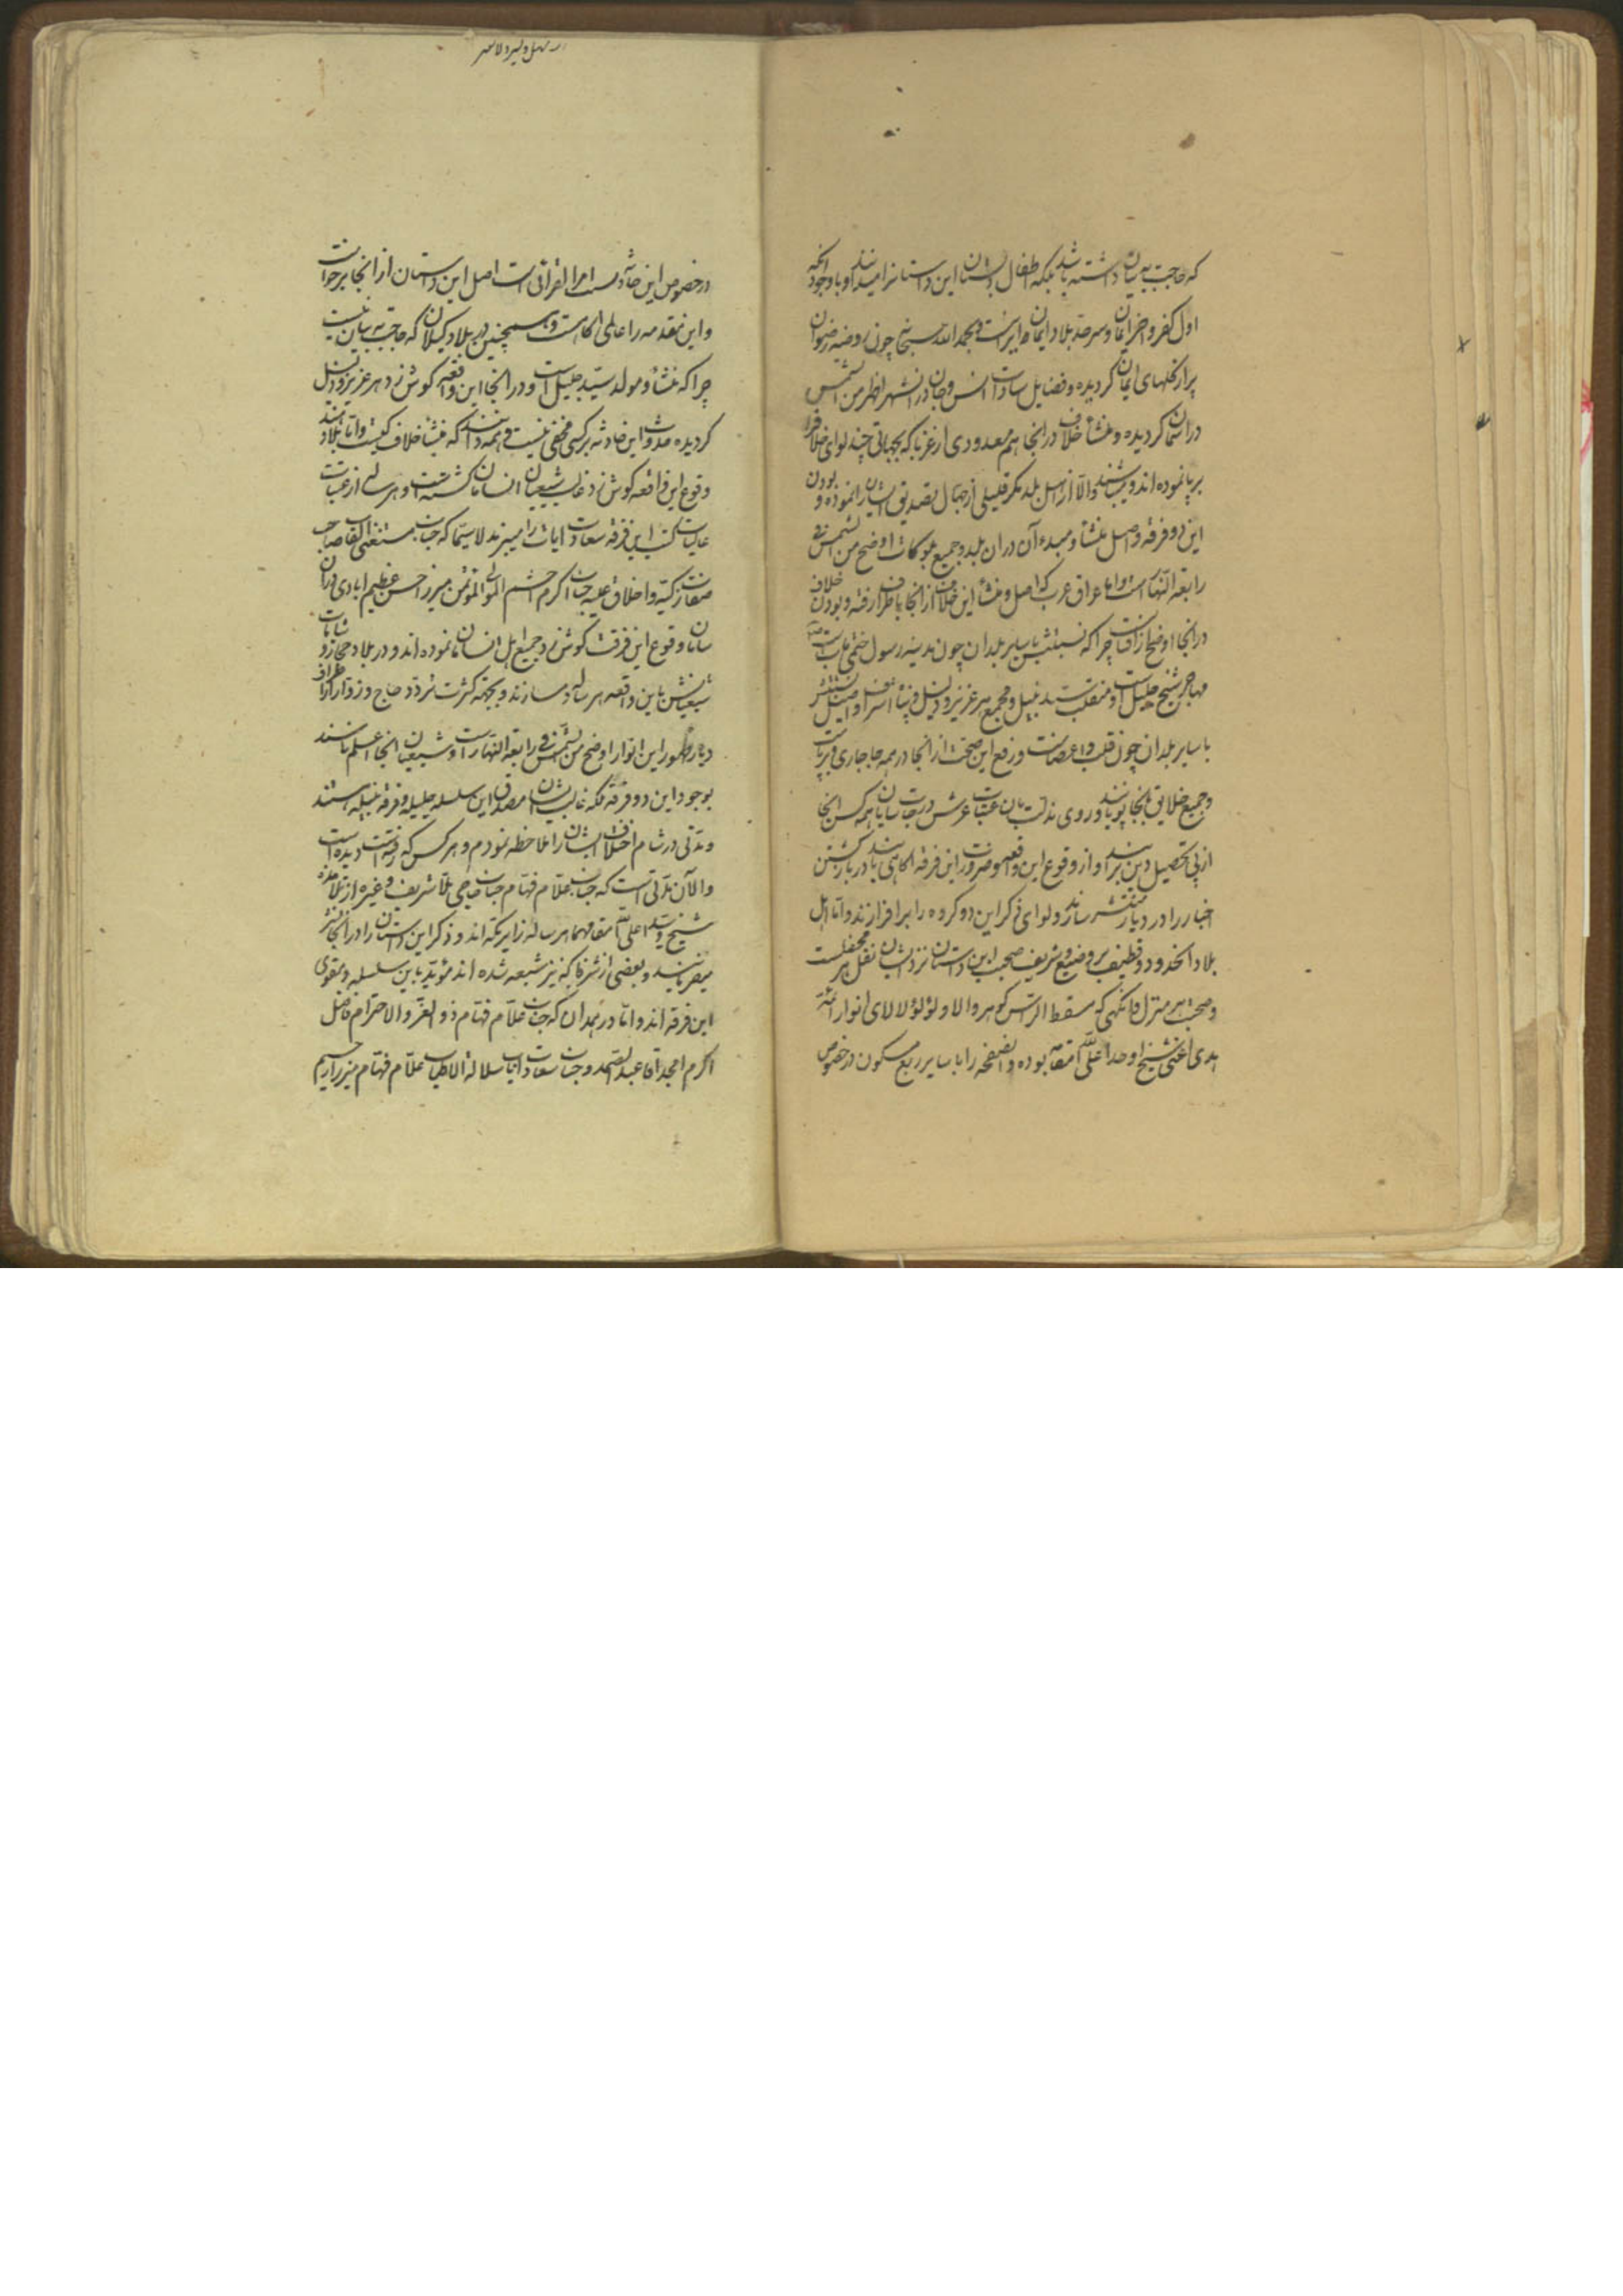 که حاجت به بیان داشته باشد بلکه اطفال دبستان این داستانرا میدانند و با وجود انکه
اول کفر و اخر ایمان و سرحد بلاد ایمان و ایرانست بحمد الله سبحانه چون روضه رضوان
پر از گلهای ایمان گردیده و فضایل سادات انس و جان در انشهر اظهر من الشمس
در آسمان گردیده و منشأ خلاف در انجا هم معدودی از غربا که بجهاتی چند لوای خلاف را
بر پا نموده اند و میباشند و الا از اهل بلد مگر قلیلی از جهال تصدیق ایشانرا ننموده و بودن
این دو فرقه و اصل منشأ و مبدء آن در ان بلد و جمیع بلوکات اوضح من الشمس فی
رابعة النهار است و اما عراق عرب که اصل و منشأ این خلاف از انجا باطراف رفته و بودن خلاف
در انجا اوضح از آفتاب چرا که نسبتش بسایر بلدان چون مدینه رسول ختمی مآبست
مهاجر شیخ جلیل است و منقلب سید نبیل و مجمع هر عزیز و ذلیل و پناه اشراف و اصیل
با سایر بلدان چون قلب و اعضاست و رفع این صحبت از انجا در همه جا جاری و برپاست
و جمیع خلایق بانجا پویانند و روی مذلت بان عتبات عرش درجات سایان همه کس انجا
از پی تحصیل دین برآیند و از وقوع این واقعه و ضرورت این فرقه اگاهی یابند در بازگشتن
اخبار را در دیار منتشر سازند و لوای ذکر این دو گروه را برافرازند و اما اهل
بلاد الحدود و قطیف بر وضیع و شریف صحبت این داستان نزد ایشان نقل هر محفلست
و صحبت هر منزل فانگهی که مسقط الراس گوهر والا و لؤلؤ لالای انوار ائمه
هدی اعنی شیخ اوحد اعلی الله مقامه بوده و انصفحه را با سایر ربع مسکون در خصوص
در خصوص این حادثه نسبت ام القرائی است اصل این داستان از انجا برخواست
و این مقدمه را عالمی اگاهست و همچنین در بلاد گیلان که حاجت به بیان نیست
چرا که منشأ و مولد سید جلیل است و در انجا این واقعه گوش زد هر عزیز و ذلیل
گردیده حدوث این حادثه بر کسی مخفی نیست و همه دانند که منشأ خلاف کیست و اما بلاد هند
وقوع این واقعه گوش زد غالب شیعیان انسامان گشته است و هر سالی از عتبات
عالیات کتب این فرقه سعادت ایات را میبرند لاسیما که جناب مستغنی الالقاب صاحب
صفات زکیه و اخلاق علیه جناب اکرم احشم المولی المؤتمن میرزا حسن عظیم ابادی در ان
سامان وقوع این فرقت گوش زد جمیع اهل انسامان نموده اند و در بلاد حجاز و شامات
شیعیانش باین واقعه هر ساله دمسازند و بجهة کثرت تردد حاج و زوار از اطراف
دیار ظهور این انوار اوضح من الشمس فی رابعة النهار است و شیعیان انجا اعلم باشند
بوجود این دو فرقه بلکه غالب ایشان مصدق این سلسله جلیله و فرقه نبیله هستند
و مدتی در شام اختلاف ایشان را ملاحظه نمودم و هر کس که رفته است دیده است
و الآن مدتی است که جناب علام فهام جناب حاجی ملا شریف و غیره از تلامذه
شیخ و سید اعلی الله مقامهما هر ساله زایر مکه اند و ذکر این داستان را در انجا نشر
میفرمایند و بعضی از شرفا که نیز شیعه شده اند مؤید باین سلسله و مقوی
این فرقه اند و اما در همدان که جناب علام فهام ذو العز و الاحترام فاضل
اکرم امجد اقا عبد الصمد و جناب سعادت ایاب سلالة الاطیاب علام فهام میرزا رحیم